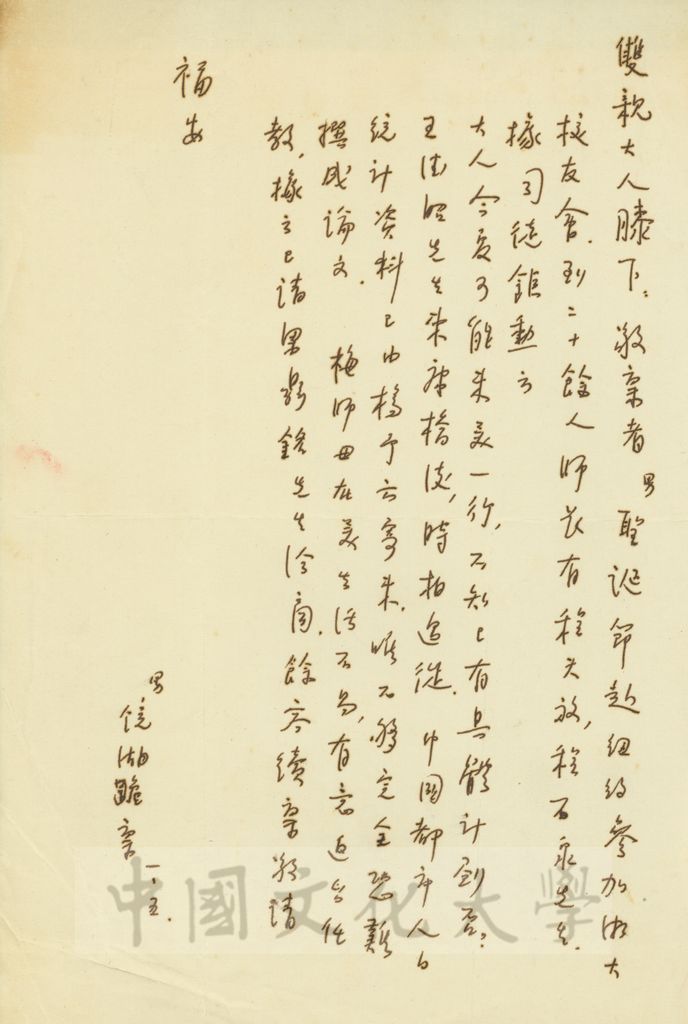 雙親大人膝下：敬稟者 男聖誕節赴紐約參加浙大
校友會，到二十餘人師長有程天放，程石泉先生。
據司徒鉅勳云
大人今夏可能來美一行，不知已有具體計劃否？
王德昭先生來康橋後，時相過從。中國都市人口
統計資料已由楊予六寄來，唯不夠完全恐難
撰成論文。 梅師母在美生活不易，有意返台任
教，據云已請果 先生洽商，餘容續稟敬請
福安
男鏡湖跪稟 一、五．
中國文化大學